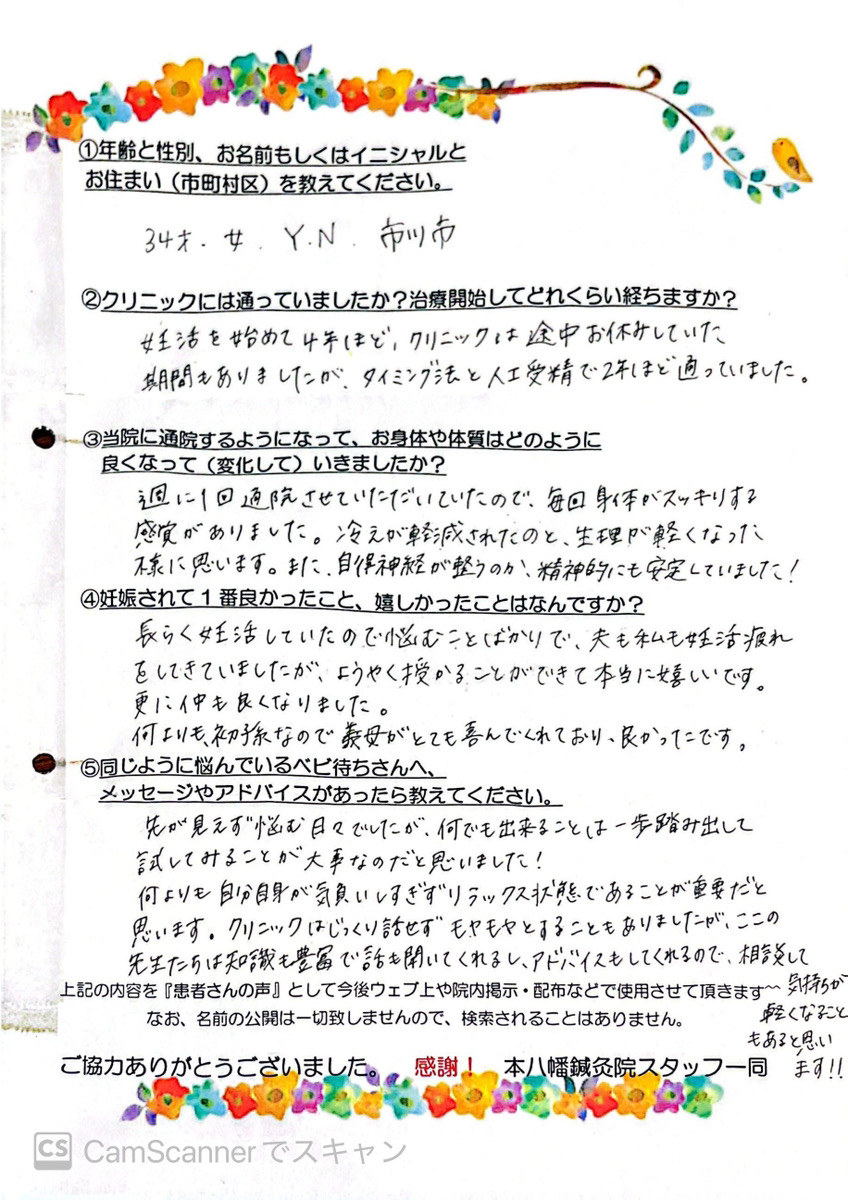 ①年齢と性別、お名前もしくはイニシャルと
お住まい（市町村区）を教えてください。
34才．女．Y.N．市川市
②クリニックには通っていましたか？治療開始してどれくらい経ちますか？
妊活を始めて4年ほど、クリニックは途中お休みしていた
期間もありましたが、タイミング法と人工受精で2年ほど通っていました。
③当院に通院するようになって、お身体や体質はどのように
良くなって（変化して）いきましたか？
週に1回通院させていただいていたので、毎回身体がスッキリする
感覚がありました。冷えが軽減されたのと、生理が軽くなった
様に思います。また、自得神経が整うのか、精神的にも安定していました！
④妊娠されて1番良かったこと、嬉しかったことはなんですか？
長らく妊活していたので悩むことばかりで、夫も私も妊活疲れ
をしてきていましたが、ようやく授かることができて本当に嬉しいです。
更に仲も良くなりました。
何よりも、初孫なので義母がとても喜んでくれており、良かったです。
⑤同じように悩んでいるベビ待ちさんへ、
メッセージやアドバイスがあったら教えてください。
先が見えず悩む日々でしたが、何でも出来ることは一歩踏み出して
試してみることが大事なのだと思いました！
何よりも自分自身が気負いしすぎずリラックス状態であることが重要だと
思います。クリニックはじっくり話せずモヤモヤとすることもありましたが、ここの
先生たちは知識も豊富で話も聞いてくれるし、アドバイスもしてくれるので、相談して
気持ちが
軽くなること
もあると思い
ます!!
上記の内容を『患者さんの声』として今後ウェブ上や院内掲示・配布などで使用させて頂きます〜
なお、名前の公開は一切致しませんので、検索されることはありません。
ご協力ありがとうございました。　感謝！　本八幡鍼灸院スタッフ一同
CS CamScanner でスキャン